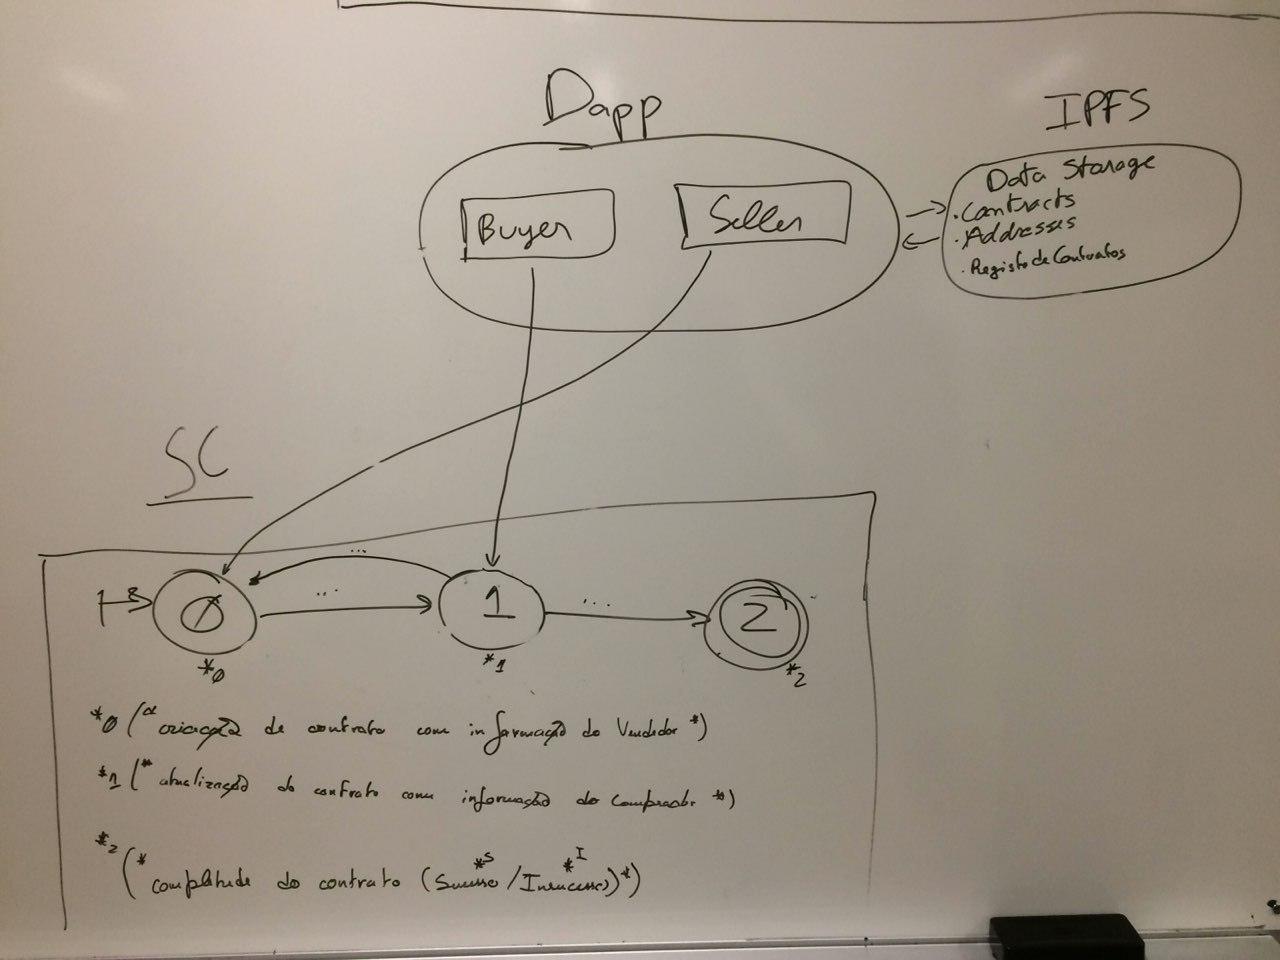 Dapp
IPFS
Buyer
Seller
Data Storage
. Contracts
. Addresses
. Registo de Contratos
SC
...
...
...
0
1
2
*0
*1
*2
*0 (* criação de contrato com informação do Vendedor *)
*1 (* atualização do contrato com informação do Comprador *)
*2 (* completude do contrato (Sucesso *S / Insucesso *I) *)